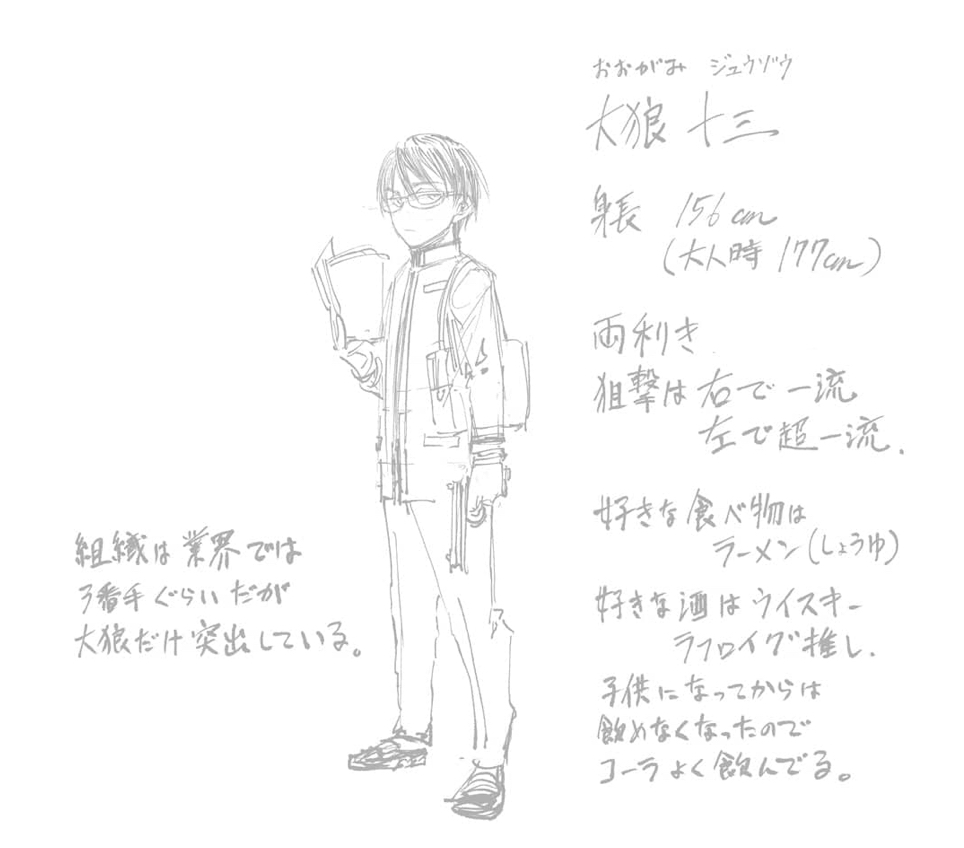 おおがみ ジュウゾウ
大狼 十三
身長 156cm
(大人時 177cm)
両利き
狙撃は右で一流
左で超一流.
好きな食べ物は
ラーメン(しょうゆ)
好きな酒はウイスキー
ラフロイグ推し.
子供になってからは
飲めなくなったので
コーラよく飲んでる。
組織は業界では
3番手ぐらいだが
大狼だけ突出している。